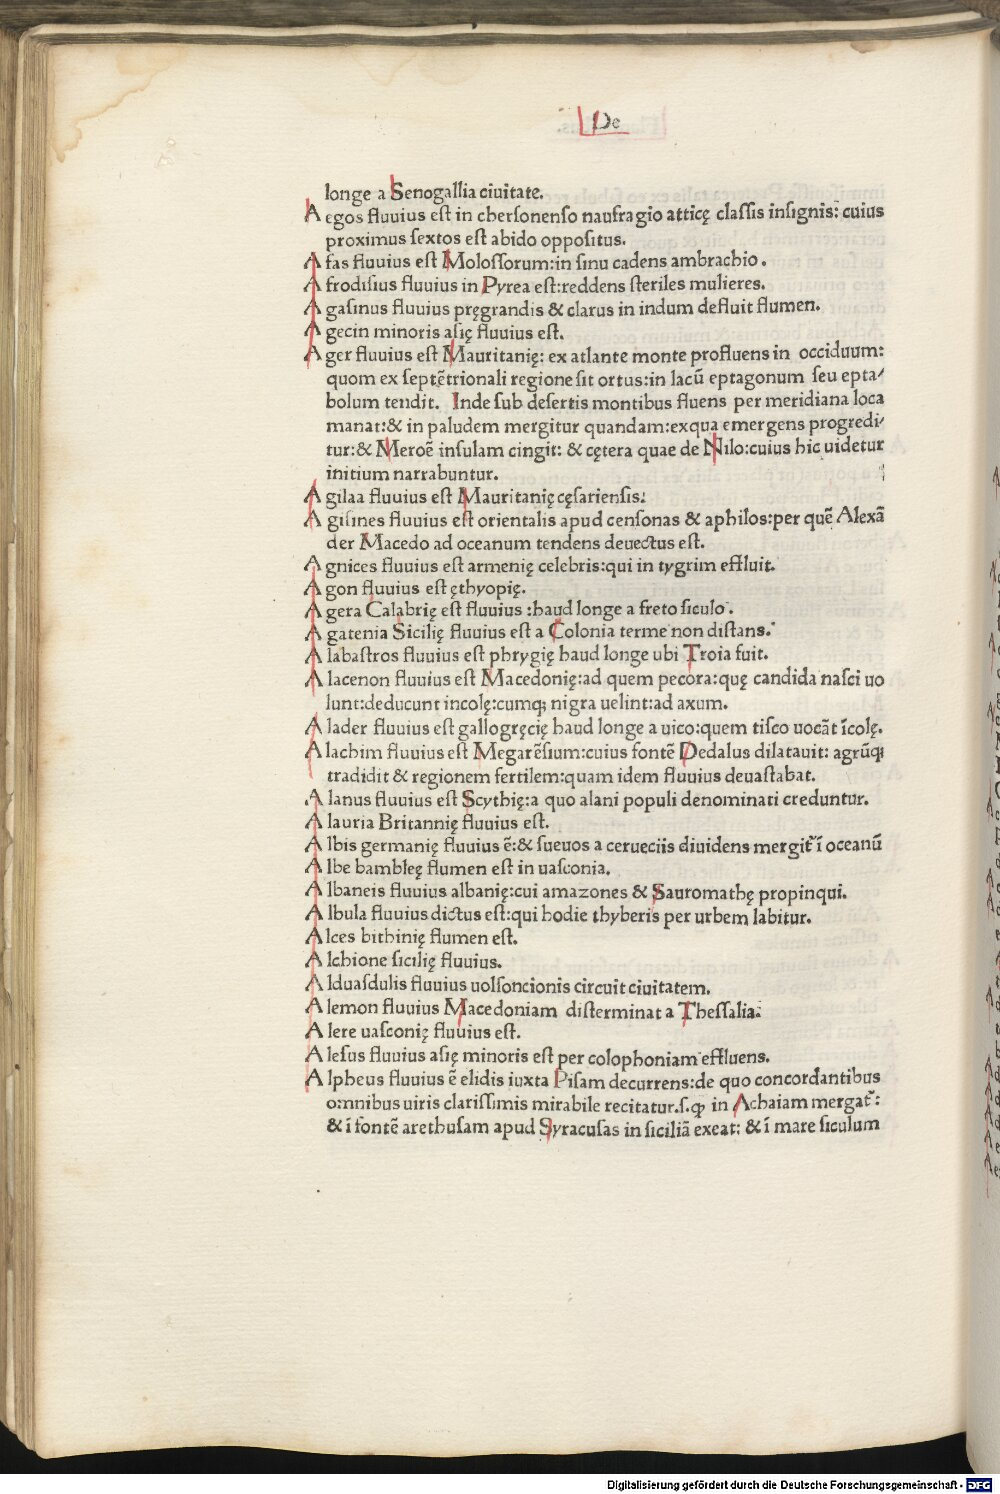 De
longe a Senogallia ciuitate.
A egos fluuius est in chersonenso naufragio atticę classis insignis: cuius
proximus sextos est abido oppositus.
A fas fluuius est Molossorum:in sinu cadens ambrachio.
A frodisius fluuius in Pyrea est:reddens steriles mulieres.
A gasinus fluuius pręgrandis & clarus in indum defluit flumen.
A gecin minoris asię fluuius est.
A ger fluuius est Mauritanię: ex atlante monte profluens in occiduum:
quom ex septẽtrionali regione sit ortus:in lacũ eptagonum seu epta/
bolum tendit. Inde sub desertis montibus fluens per meridiana loca
manat:& in paludem mergitur quandam:exqua emergens progredi/
tur:& Meroẽ insulam cingit: & cętera quae de Nilo:cuius hic uidetur
initium narrabuntur.
A gilaa fluuius est Mauritanię cęsariensis:
A gisines fluuius est orientalis apud censonas & aphilos:per quẽ Alexã
der Macedo ad oceanum tendens deuectus est.
A gnices fluuius est armenię celebris:qui in tygrim effluit.
A gon fluuius est ęthyopię.
A gera Calabrię est fluuius :haud longe a freto siculo.
A gatenia Sicilię fluuius est a Colonia terme non distans.
A labastros fluuius est phrygię haud longe ubi Troia fuit.
A lacenon fluuius est Macedonię:ad quem pecora:quę candida nasci uo
lunt:deducunt incolę:cumq; nigra uelint:ad axum.
A lader fluuius est gallogręcię haud longe a uico:quem tisco uocãt ĩcolę.
A lachim fluuius est Megarẽsium:cuius fontẽ Dedalus dilatauit: agrũq;
tradidit & regionem fertilem:quam idem fluuius deuastabat.
A lanus fluuius est Scythię:a quo alani populi denominati creduntur.
A lauria Britannię fluuius est.
A lbis germanię fluuius ẽ:& sueuos a cerueciis diuidens mergit᷑ ĩ oceanũ
A lbe bambleę flumen est in uasconia.
A lbaneis fluuius albanię:cui amazones & Sauromathę propinqui.
A lbula fluuius dictus est:qui hodie thyberis per urbem labitur.
A lces bithinię flumen est.
A lchione sicilię fluuius.
A lduasdulis fluuius uolsoncionis circuit ciuitatem.
A lemon fluuius Macedoniam disterminat a Thessalia:
A lere uasconię fluuius est.
A lesus fluuius asię minoris est per colophoniam effluens.
A lpheus fluuius ẽ elidis iuxta Pisam decurrens:de quo concordantibus
omnibus uiris clarissimis mirabile recitatur.s.ꝙ in Achaiam mergat᷑:
& ĩ fontẽ arethusam apud Syracusas in siciliã exeat: & ĩ mare siculum
Digitalisierung gefördert durch die Deutsche Forschungsgemeinschaft - DFG